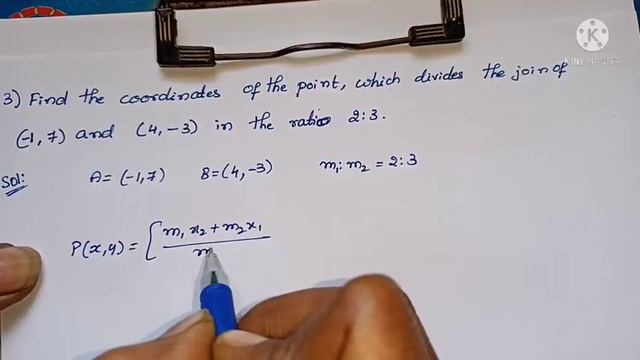 KINEMASTER
3) Find the coordinates of the point, which divides the join of
(-1,7) and (4,-3) in the ratio 2:3.
Sol: A=(-1,7) B=(4,-3) m₁:m₂=2:3
P(x,y) = [ m₁x₂+m₂x₁
m